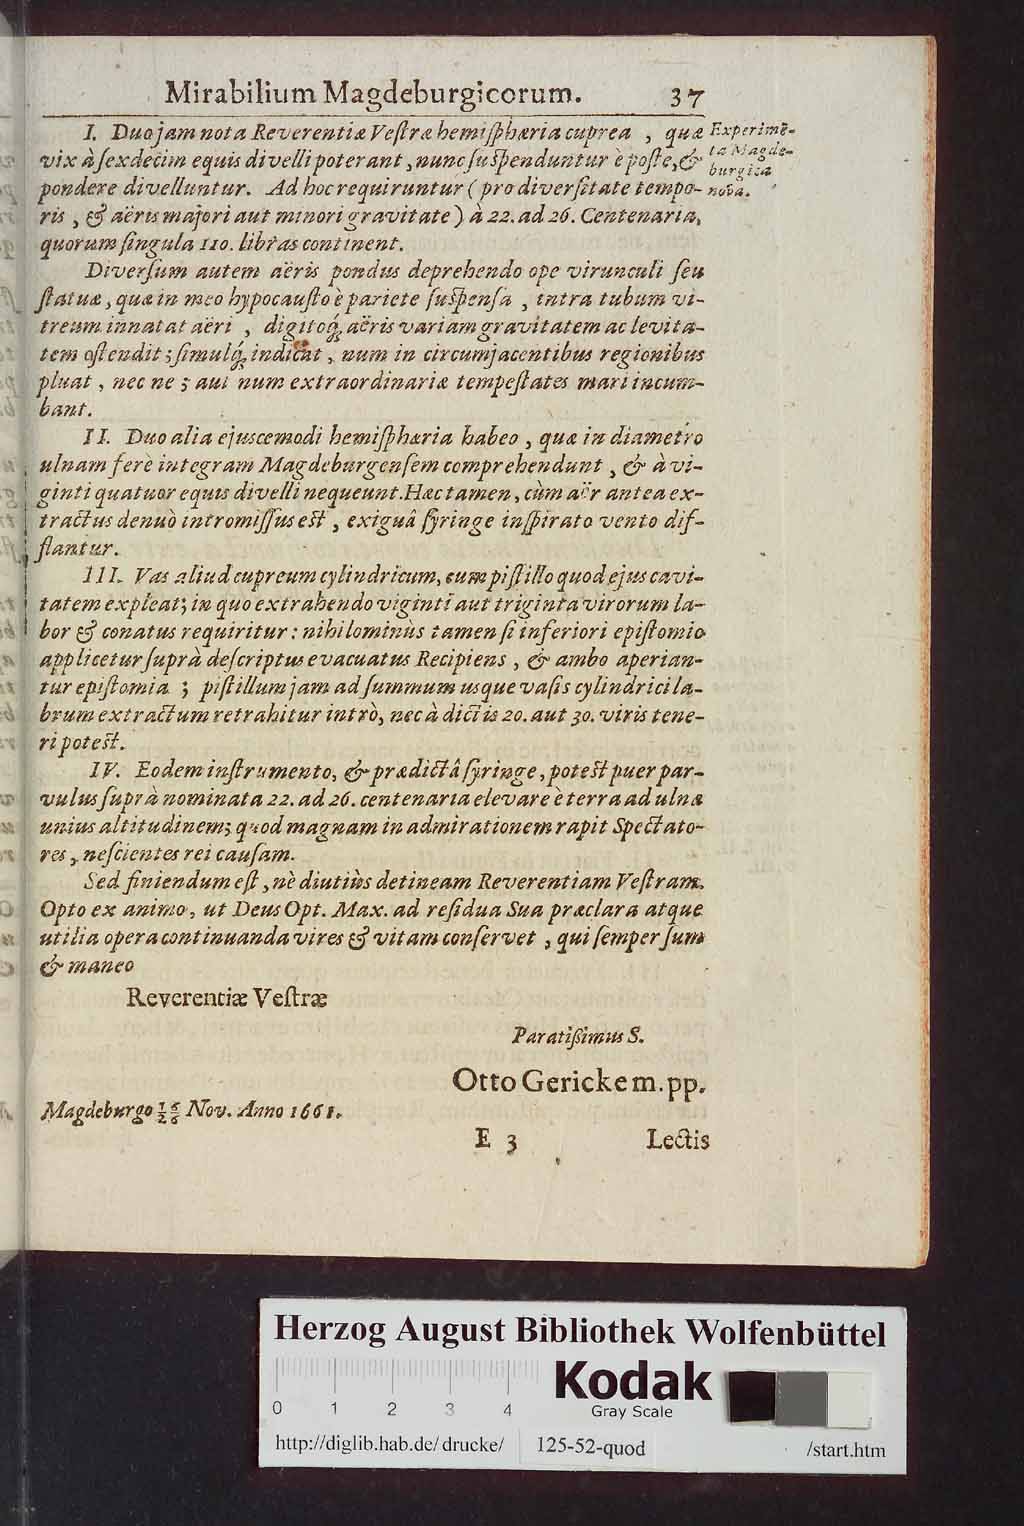 Mirabilium Magdeburgicorum. 37
I. Duo jam nota Reverentiæ Veſtræ hemiſphæria cuprea, quæ
vix à ſexdecim equis divelli poterant, nunc ſuſpenduntur è poſte, &
pondere divelluntur. Ad hoc requiruntur (pro diverſitate tempo-
ris, & aëris majori aut minori gravitate) à 22. ad 26. Centenaria,
quorum ſingula 110. libras continent.
Experimē-
ta Magde-
burgica
nova.
Diverſum autem aëris pondus deprehendo ope virunculi ſeu
ſtatuæ, quæ in meo hypocauſto è pariete ſuſpenſa, intra tubum vi-
treum innatat aëri, digitoq́; aëris variam gravitatem ac levita-
tem oſtendit; ſimulq́; indicat, num in circumjacentibus regionibus
pluat, nec ne; aut num extraordinariæ tempeſtates mari incum-
bant.
II. Duo alia ejuscemodi hemiſphæria habeo, quæ in diametro
ulnam ferè integram Magdeburgenſem comprehendunt, & à vi-
ginti quatuor equis divelli nequeunt. Hæc tamen, cùm aër antea ex-
tractus denuò intromiſſus eſt, exiguâ ſyringe inſpirato vento dif-
flantur.
III. Vas aliud cupreum cylindricum, cum piſtillo quod ejus cavi-
tatem expleat; in quo extrahendo viginti aut triginta virorum la-
bor & conatus requiritur: nihilominùs tamen ſi inferiori epiſtomio
applicetur ſuprà deſcriptus evacuatus Recipiens, & ambo aperian-
tur epiſtomia; piſtillum jam ad ſummum usque vaſis cylindrici la-
brum extractum retrahitur intrò, nec à dictis 20. aut 30. viris tene-
ri poteſt.
IV. Eodem inſtrumento, & prædictâ ſyringe, poteſt puer par-
vulus ſuprà nominata 22. ad 26. centenaria elevare è terra ad ulnæ
unius altitudinem; quod magnam in admirationem rapit Spectato-
res, neſcientes rei cauſam.
Sed finiendum eſt, nè diutiùs detineam Reverentiam Veſtram.
Opto ex animo, ut Deus Opt. Max. ad reſidua Sua præclara atque
utilia opera continuanda vires & vitam conſervet, qui ſemper ſum
& maneo
Reverentiæ Veſtræ
Paratißimus S.
Otto Gericke m. pp.
Magdeburgo 16/26 Nov. Anno 1661.
E 3 Lectis
Herzog August Bibliothek Wolfenbüttel
0 1 2 3 4
Kodak
Gray Scale
http://diglib.hab.de/drucke/ 125-52-quod /start.htm